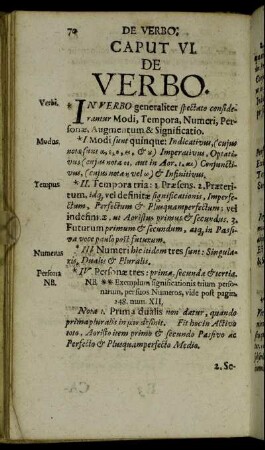 70 DE VERBO.
CAPUT VI.
DE
VERBO.
Verbi. * IN VERBO generaliter spectato conside-
rantur Modi, Tempora, Numeri, Per-
sonæ, Augmentum & Significatio.
Modus. * I Modi sunt quinque: Indicativus, (cujus
Imperativus, Optati-
vus (cujus nota οι, aut in Aor. 1. αι) Conjuncti-
vus, (cujus nota η vel ω) & Infinitivus.
Tempus * II. Tempora tria: 1. Præsens. 2. Præteri-
tum, idq, vel definitæ significationis, Imper-
fectum, Perfectum & Plusquamperfectum: vel
indefinitæ. ut Aoristus primus & secundus. 3.
Futurum primum & secundum, atq, in Passi-
va voce paulo post futurum.
Numerus * III Numeri hic itidem tres sunt: Singula-
ris, Dualis & Pluralis.
Persona * IV Personæ tres: prima, secunda & tertia.
NB. NB. ** Exemplum significationis trium perso-
narum, per suos Numeros, vide post pagin.
148. num. XII.
Nota 1. Prima dualis non datur, quando
prima pluralis in μεν desinit. Fit hoc in Activo
toto, Aoristo item primo & secundo Passivo ac
Perfecto & Plusquamperfecto Medio.
2. Se-